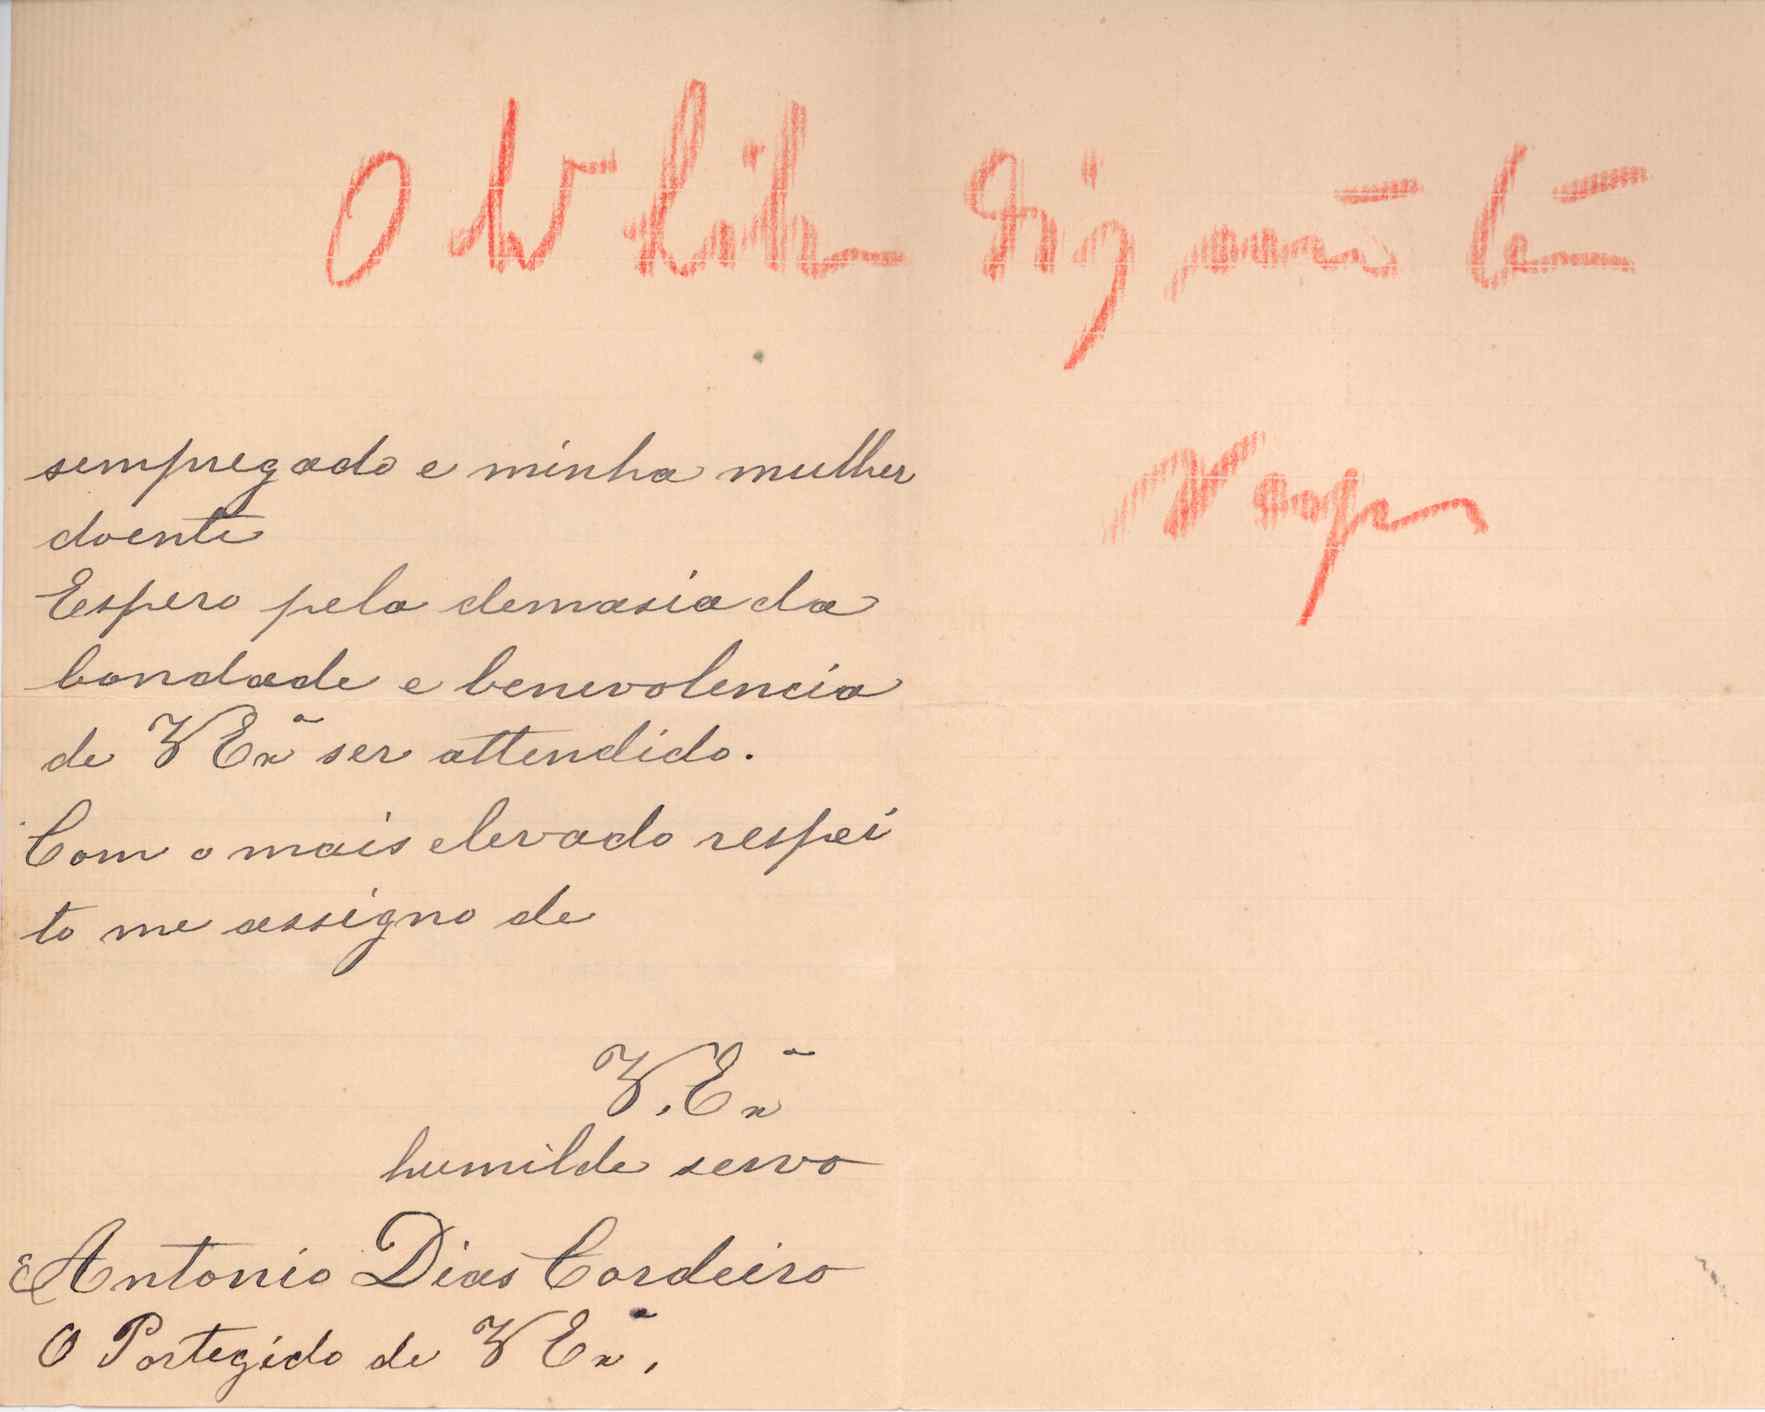 sempregado e minha mulher
doente
Espero pela demasiada
bondade e benevolencia
de V Exª ser attendido.
Com o mais elevado respei
to me assigno de
V. Exª
humilde servo
Antonio Dias Cordeiro
O Portegido de V Exª.
O
não